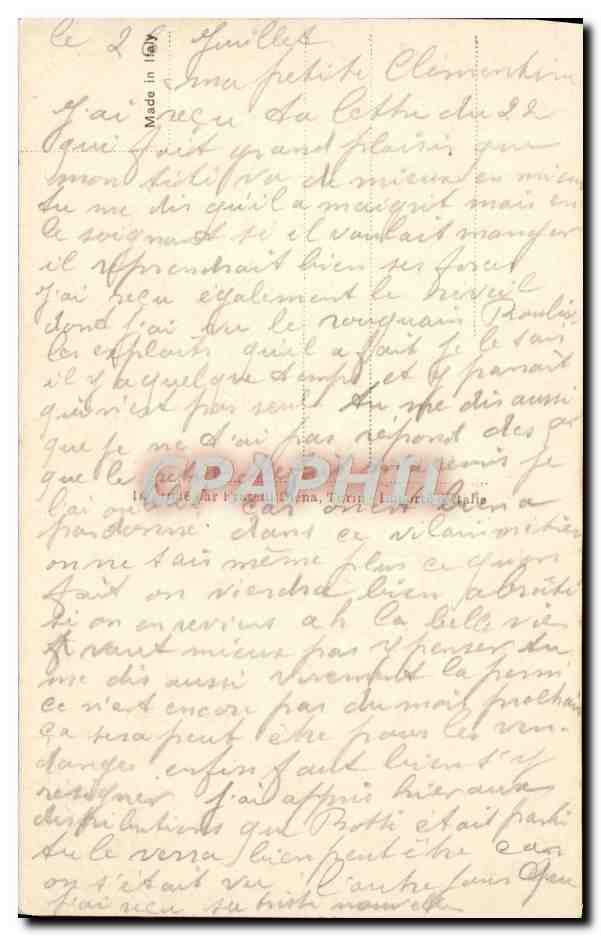 le 26 Juillet
Made in Italy
ma petite Clementine
J'ai reçu ta lettre du 22
qui fait grand plaisir que
mon titi va de mieux en mieux
tu me dis qu'il a maigrit mais en
le soignant si il voulait manger
il reprendrait bien ses forces
J'ai reçu également le
dont j'ai vu le
les exploits qu'il a fait je le sais
il y a quelque temps et y parait
qu'il n'est pas seul tu me dis aussi
que je ne t'ai pas répond des
que le je
CPARPHIL
Fratelli Torino
l'ai car on est bien a
dans ce vilain métier
on ne sais même plus ce qu'on
fait on viendra bien abruti
si on en reviens ah la belle vie
vaut mieux pas y penser tu
me dis aussi vivement la permi
ce n'est encore pas du mois prochain
ça sera peut être pour les ven-
danges enfin faut bien s'y
résigner J'ai appris hier aux
distributions que était parti
tu le verra bien peut être car
on s'était vu l'autre jour
J'ai reçu sa triste nouvelle